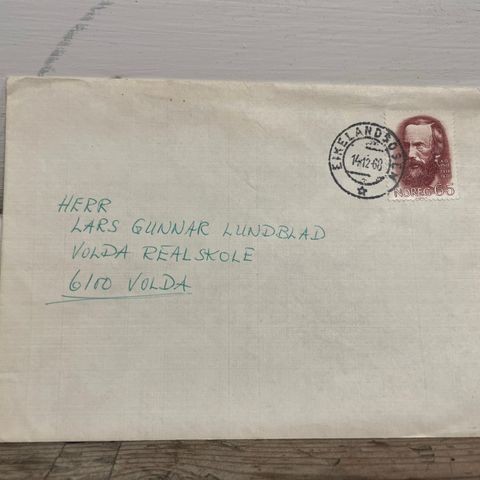 EIKELANDSOSEN
14.12.68
NOREG 65
HERR
LARS GUNNAR LUNDBLAD
VOLDA REALSKOLE
6100 VOLDA